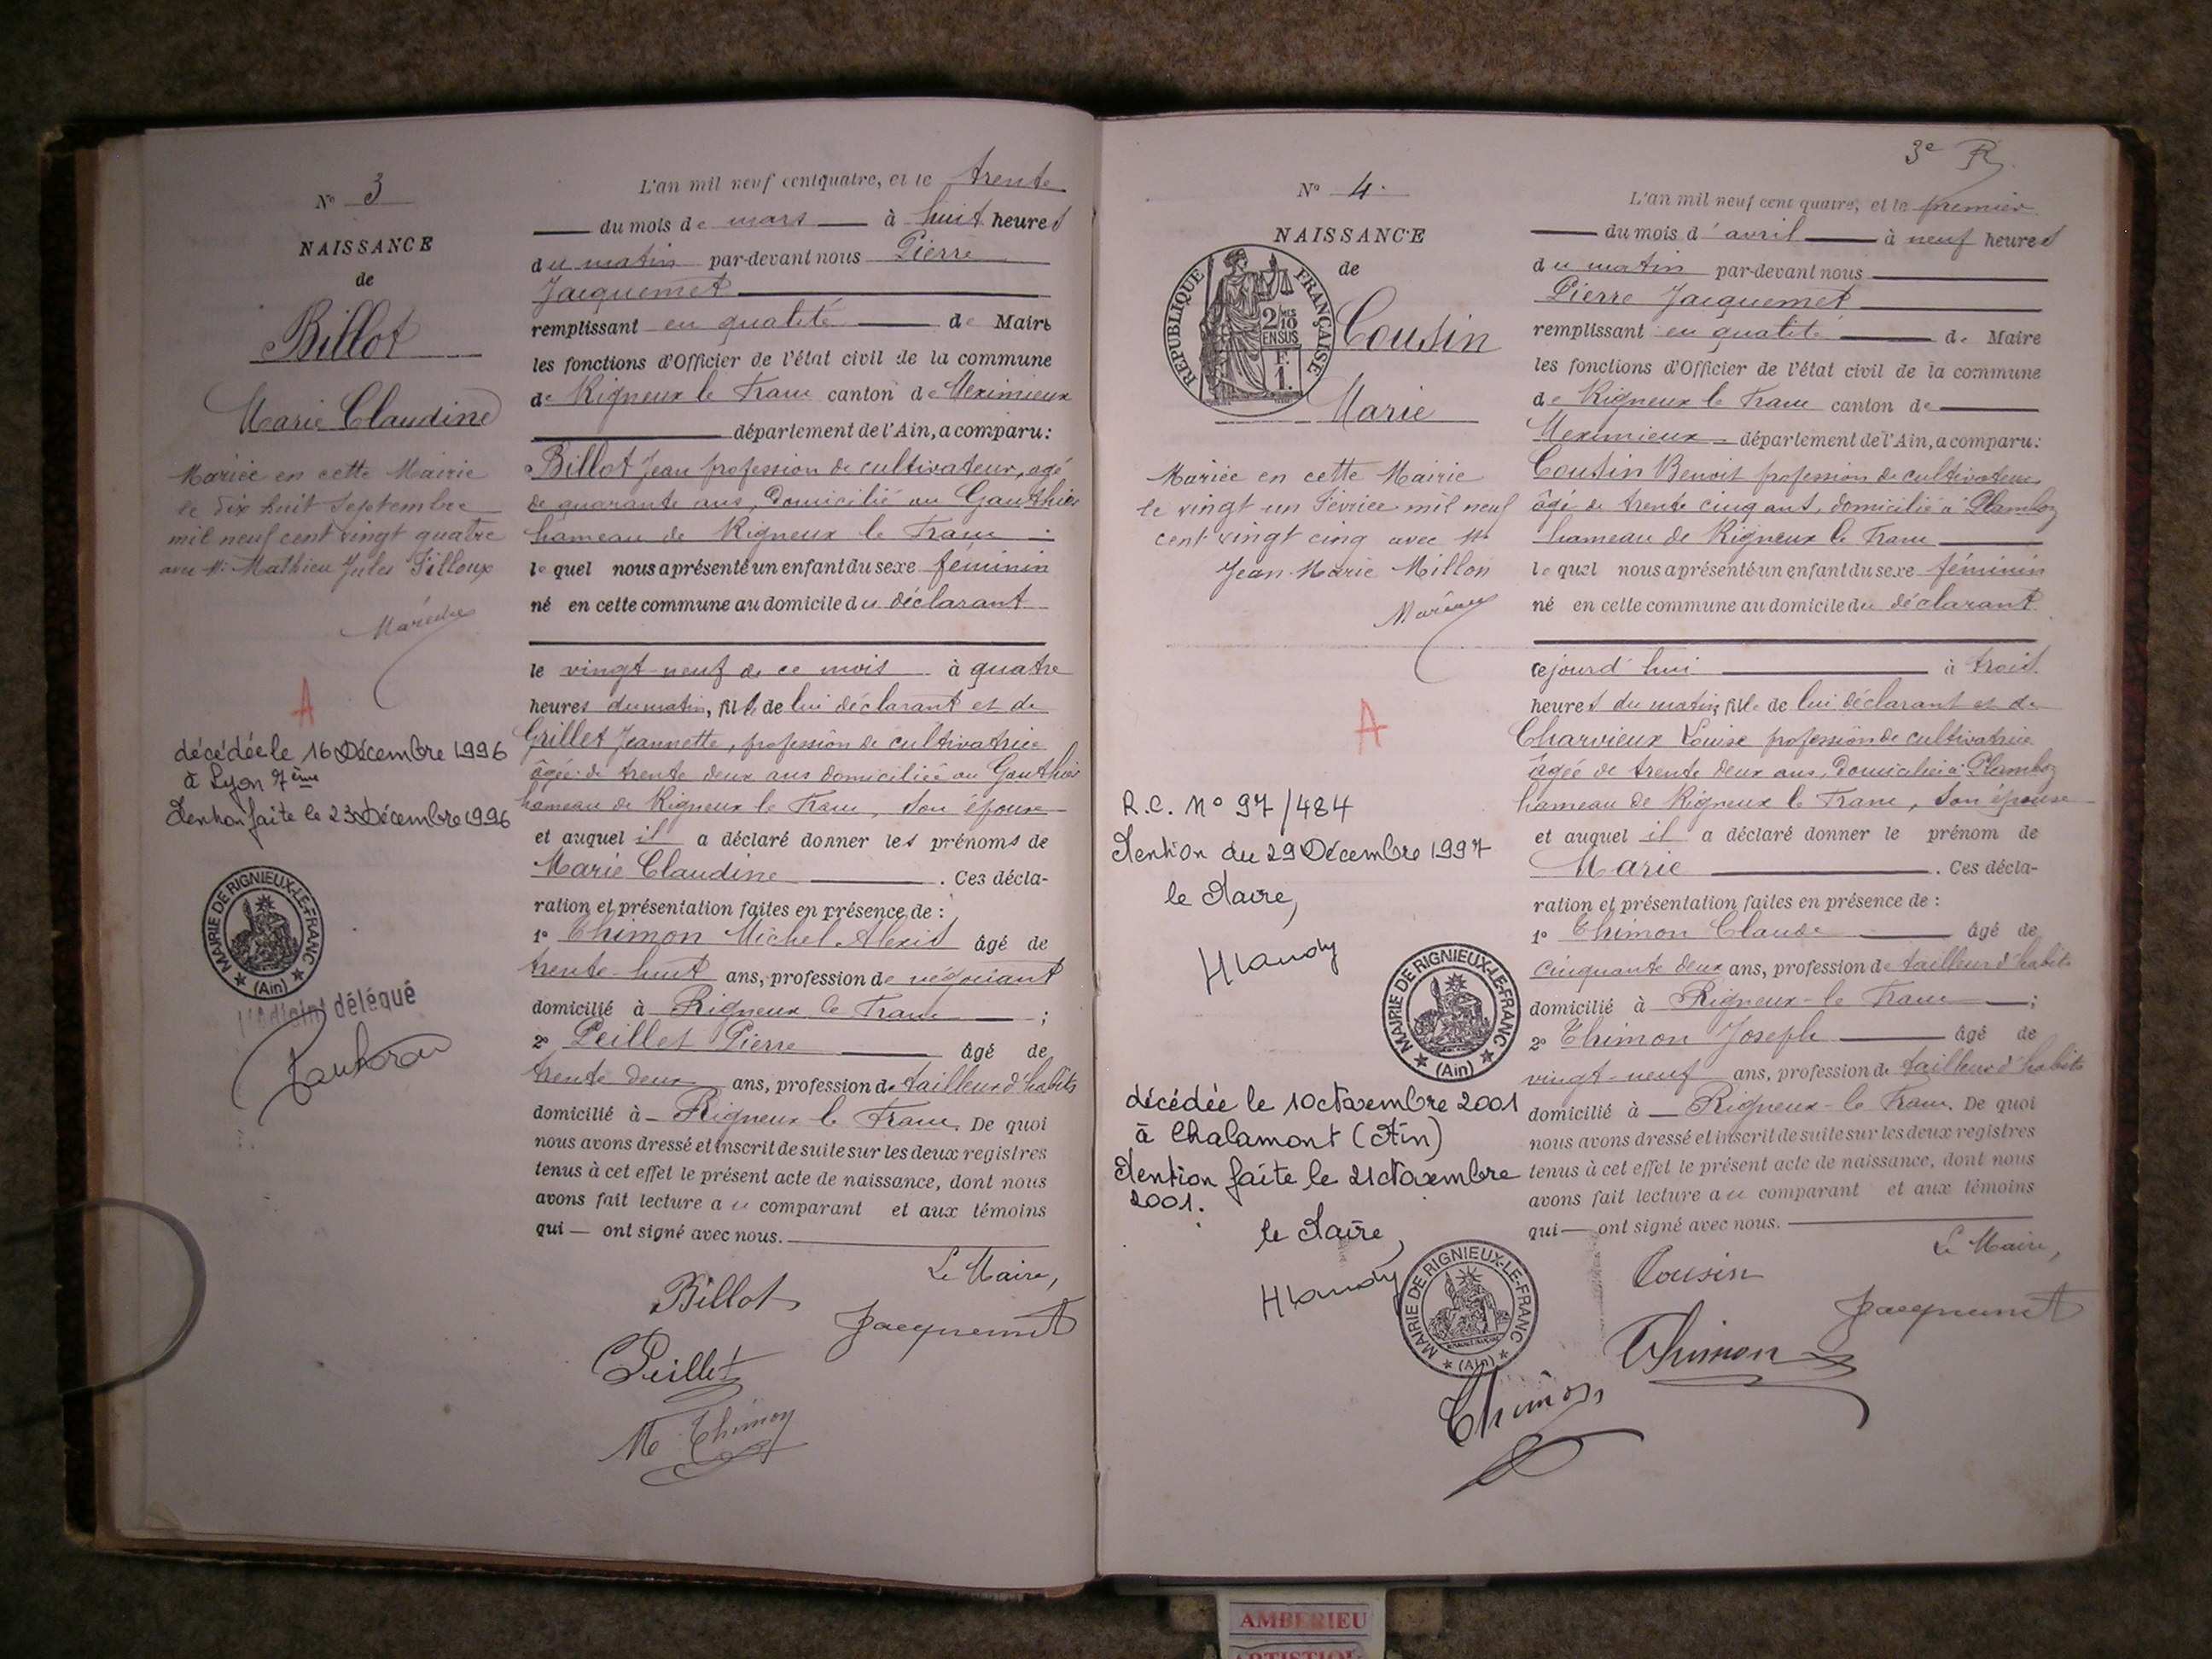 N° 3
NAISSANCE
de
Billot
Marie Claudine
Mariée en cette Mairie
le dix huit Septembre
mil neuf cent vingt quatre
avec M. Mathieu Jules Filloux
A
décédée le 16 Décembre 1996
à Lyon 7ème
Mention faite le 23 Décembre 1996
MAIRIE DE RIGNIEUX-LE-FRANC
(Ain)
l'adjoint délégué
L'an mil neuf cent quatre, et le trente
du mois de mars à huit heures
du matin par-devant nous Pierre
Jacquemet
remplissant en qualité de Maire
les fonctions d'Officier de l'état civil de la commune
de Rigneux le Franc canton de Meximieux
département de l'Ain, a comparu:
Billot Jean profession de cultivateur, agé
de quarante ans, domicilié au Gauthier
hameau de Rigneux le Franc
le quel nous a présenté un enfant du sexe féminin
né en cette commune au domicile du déclarant
le vingt-neuf de ce mois à quatre
heures du matin, fille de lui déclarant et de
Grillet Jeannette, profession de cultivatrice
âgée de trente deux ans domiciliée au Gauthier
hameau de Rigneux le Franc, son épouse
et auquel il a déclaré donner les prénoms de
Marie Claudine. Ces décla-
ration et présentation faites en présence de :
1° Thimon Michel Alexis âgé de
trente-huit ans, profession de négociant
domicilié à Rigneux le Franc ;
2° Peillet Pierre âgé de
trente deux ans, profession de tailleur d'habits
domicilié à Rigneux le Franc. De quoi
nous avons dressé et inscrit de suite sur les deux registres
tenus à cet effet le présent acte de naissance, dont nous
avons fait lecture au comparant et aux témoins
qui — ont signé avec nous.
Le Maire,
Billot
Jacquemet
Peillet
M Thimon
3e R
N° 4.
NAISSANCE
de
RÉPUBLIQUE FRANÇAISE
2/10 EN SUS
F. 1.
Cousin
Marie
Mariée en cette Mairie
le vingt un Février mil neuf
cent vingt cinq avec M.
Jean-Marie Millon
A
R.C. N° 97/484
Mention du 29 Décembre 1997
le Maire,
MAIRIE DE RIGNIEUX-LE-FRANC
(Ain)
décédée le 10 Novembre 2001
à Chalamont (Ain)
Mention faite le 21 Novembre
2001.
le Maire,
MAIRIE DE RIGNIEUX-LE-FRANC
(Ain)
L'an mil neuf cent quatre, et le premier
du mois d'avril à neuf heures
du matin par-devant nous
Pierre Jacquemet
remplissant en qualité de Maire
les fonctions d'Officier de l'état civil de la commune
de Rigneux le Franc canton de
Meximieux département de l'Ain, a comparu:
Cousin Benoit profession de cultivateur
âgé de trente cinq ans, domicilié à Plamboz
hameau de Rigneux le Franc
le quel nous a présenté un enfant du sexe féminin
né en cette commune au domicile du déclarant
cejourd'hui à trois
heures du matin, fille de lui déclarant et de
Charvieux Louise profession de cultivatrice
âgée de trente deux ans, domiciliée à Plamboz
hameau de Rigneux le Franc, son épouse
et auquel il a déclaré donner le prénom de
Marie. Ces décla-
ration et présentation faites en présence de :
1° Thimon Claude âgé de
cinquante deux ans, profession de tailleur d'habits
domicilié à Rigneux-le Franc ;
2° Thimon Joseph âgé de
vingt-neuf ans, profession de tailleur d'habits
domicilié à Rigneux-le Franc. De quoi
nous avons dressé et inscrit de suite sur les deux registres
tenus à cet effet le présent acte de naissance, dont nous
avons fait lecture au comparant et aux témoins
qui — ont signé avec nous.
Le Maire,
Cousin
Jacquemet
Thimon
Thimon
AMBERIEU